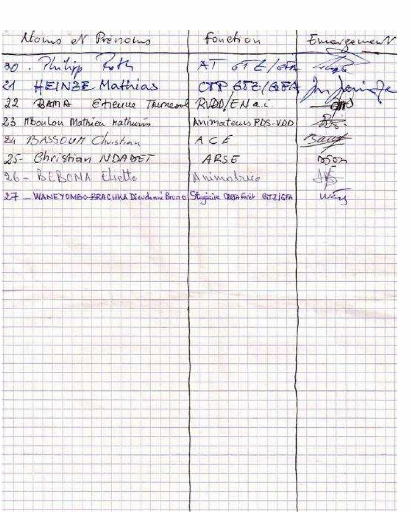 Noms et Prénoms Fonction Emargement
20 - Philipp Roth AT GTZ/GFA
21 HEINZE Mathias CTP GTZ/GFA
22 BAMA Etienne RVDD/ENai
23 Mboulou Mathieu Mathurin Animateur PDS-VDD
24 BASSOUM Christian ACE
25- Christian NDADET ARSE
26- BEBONA Eliette Animatrice
27 - WANEYOMBO-BRACHKA Dieudonné Bruno Stagiaire GTZ/GFA